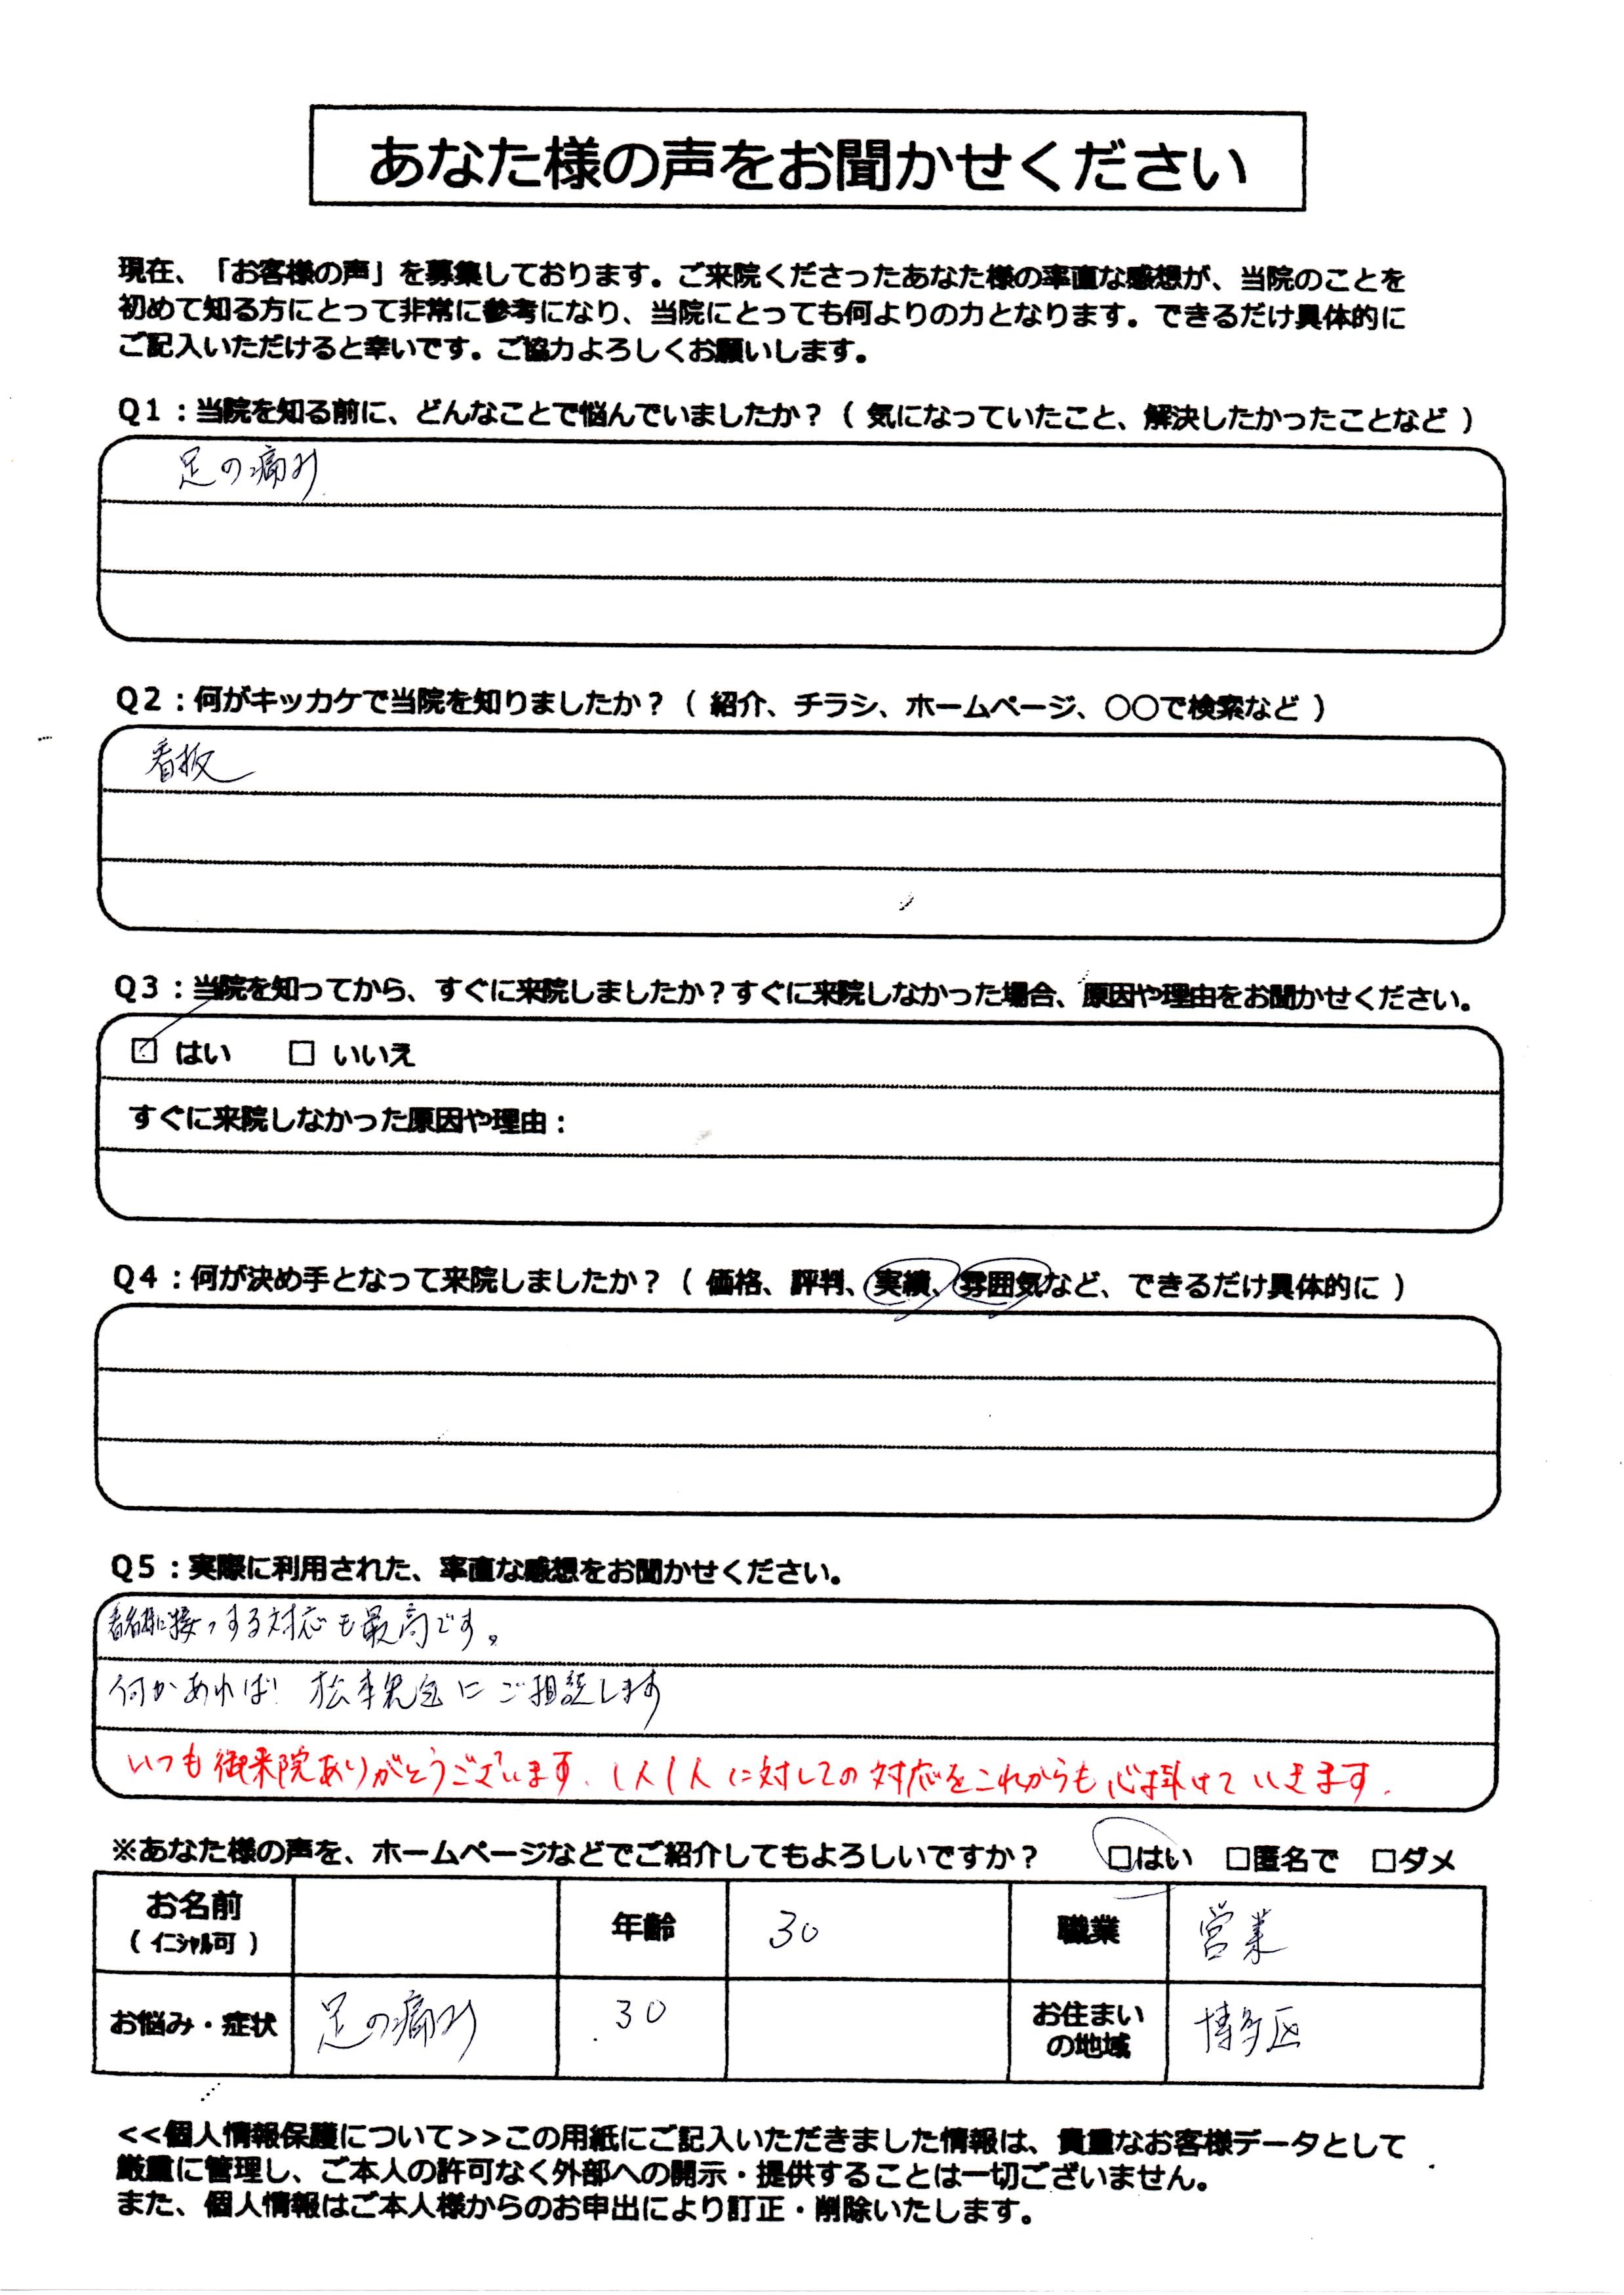 あなた様の声をお聞かせください
現在、「お客様の声」を募集しております。ご来院くださったあなた様の率直な感想が、当院のことを
初めて知る方にとって非常に参考になり、当院にとっても何よりの力となります。できるだけ具体的に
ご記入いただけると幸いです。ご協力よろしくお願いします。
Q1：当院を知る前に、どんなことで悩んでいましたか？（ 気になっていたこと、解決したかったことなど ）
足の痛み
Q2：何がキッカケで当院を知りましたか？（ 紹介、チラシ、ホームページ、○○で検索など ）
看板
Q3：当院を知ってから、すぐに来院しましたか？すぐに来院しなかった場合、原因や理由をお聞かせください。
☑ はい □ いいえ
すぐに来院しなかった原因や理由：
Q4：何が決め手となって来院しましたか？（ 価格、評判、実績、雰囲気など、できるだけ具体的に ）
Q5：実際に利用された、率直な感想をお聞かせください。
する対応も最高です。
何かあれば! 松本先生にご相談します
いつも御来院ありがとうございます。1人1人に対しての対応をこれからも心掛けていきます。
※あなた様の声を、ホームページなどでご紹介してもよろしいですか？ □はい □匿名で □ダメ
お名前 年齢 30 職業 営業
（ イニシャル可 ）
お悩み・症状 足の痛み 30 お住まいの地域 博多区
<<個人情報保護について>>この用紙にご記入いただきました情報は、貴重なお客様データとして
厳重に管理し、ご本人の許可なく外部への開示・提供することは一切ございません。
また、個人情報はご本人様からのお申出により訂正・削除いたします。